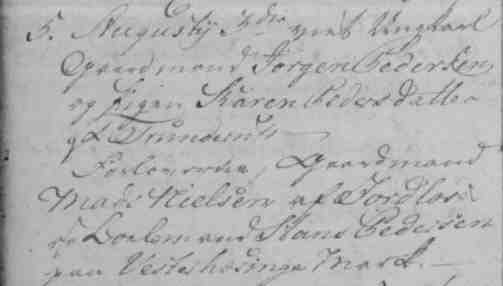 5. Augustÿ 3die viet Ungkarl
Gaardmand Jörgen Pedersen
og Pigen Karen Peders datter
af Trunderup
Forlovere, Gaardmand
Mads Nielsen af Jordløs
og Boelsmand Hans Pedersen
paa Vesterhæsinge Mark. —